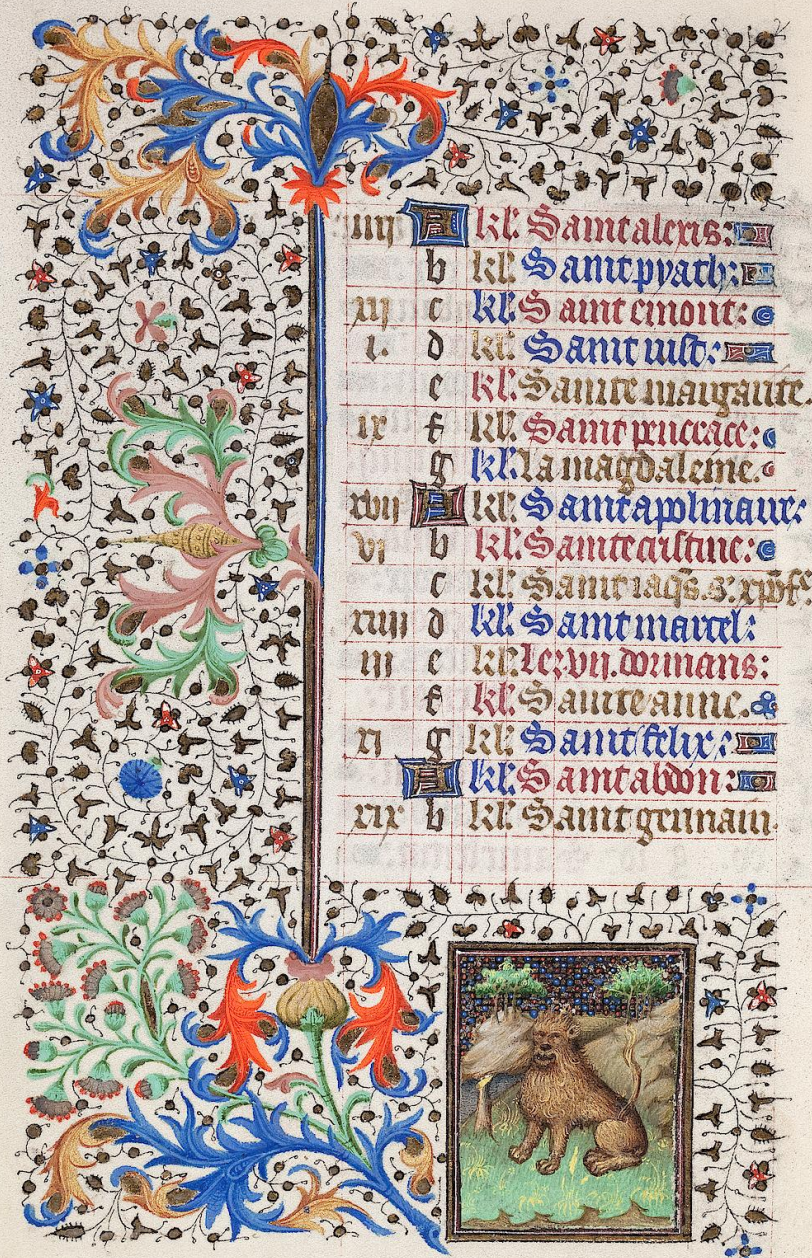 iiii A kl. Saint alexis.
b kl. Saint pyath.
xii c kl. Saint
i. d kl. Saint iust.
e kl. Sainte margarite.
ix f kl. Saint
g kl. la magdaleine.
xvii A kl. Saint apolinaire
vi b kl. Sainte cristine.
c kl. Saint iaqs. s. xpofe
xiiii d kl. Saint marcel.
iii e kl. Les vii. dormans.
f kl. Sainte anne.
xi g kl. Saint felix.
A kl. Saint abdon.
xix b kl. Saint germain.